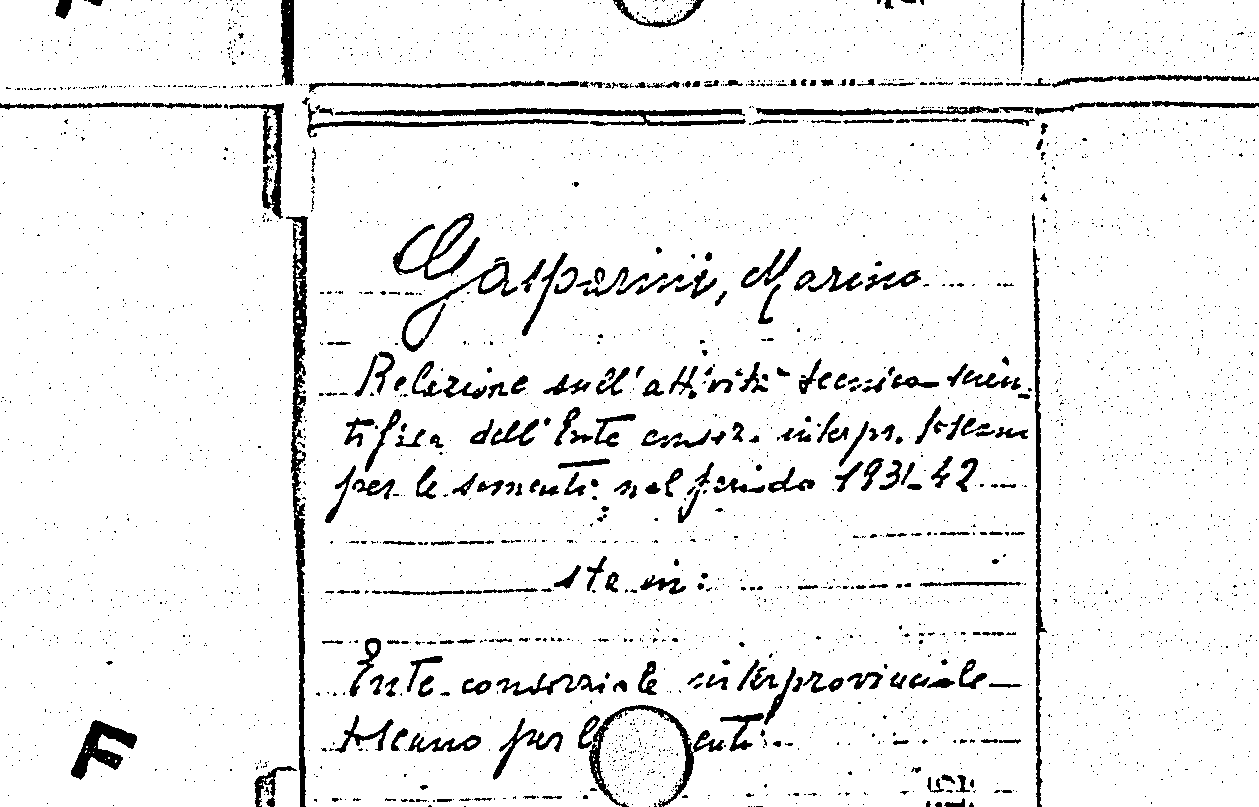 Gasparini, Marino
Relazione sull'attività tecnico-scien-
tifica dell'Ente consorz. interpr. toscano
per le sementi, nel periodo 1931-42
sta in:
Ente consorziale interprovinciale
toscano per le enti.
F